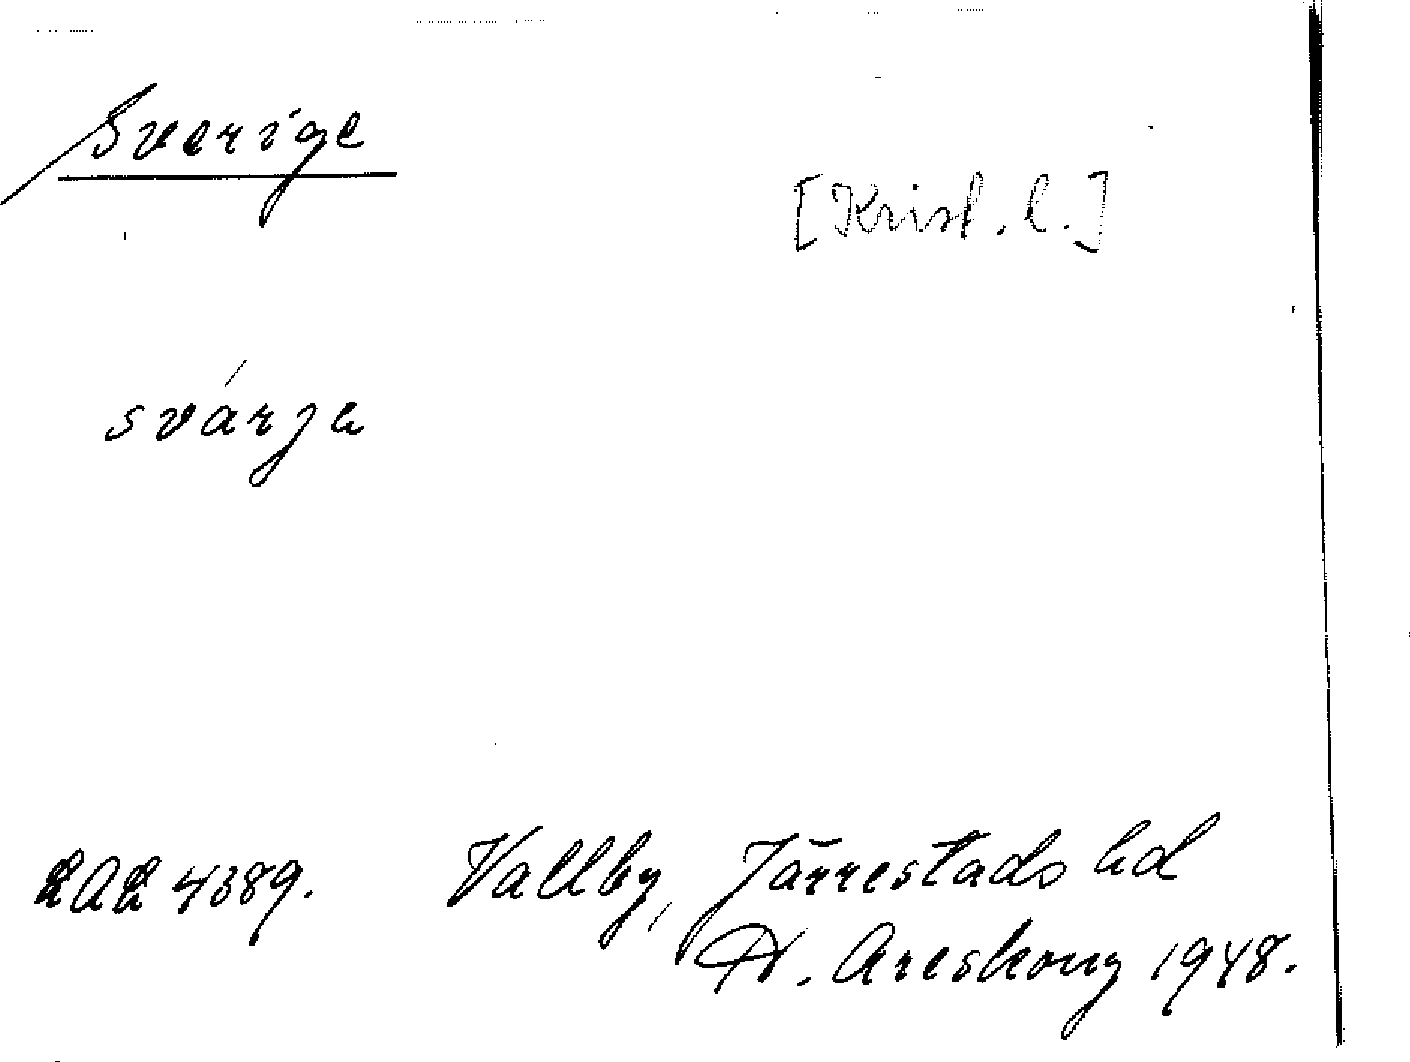 Sverige
[Krist. l.]
svárja
LAL 4389. Vallby, Järrestads hd
H. Areskoug 1948.